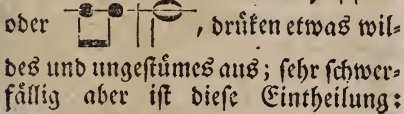 oder , drüken etwas wil-
des und ungestümes aus; sehr schwer-
fällig aber ist diese Eintheilung: